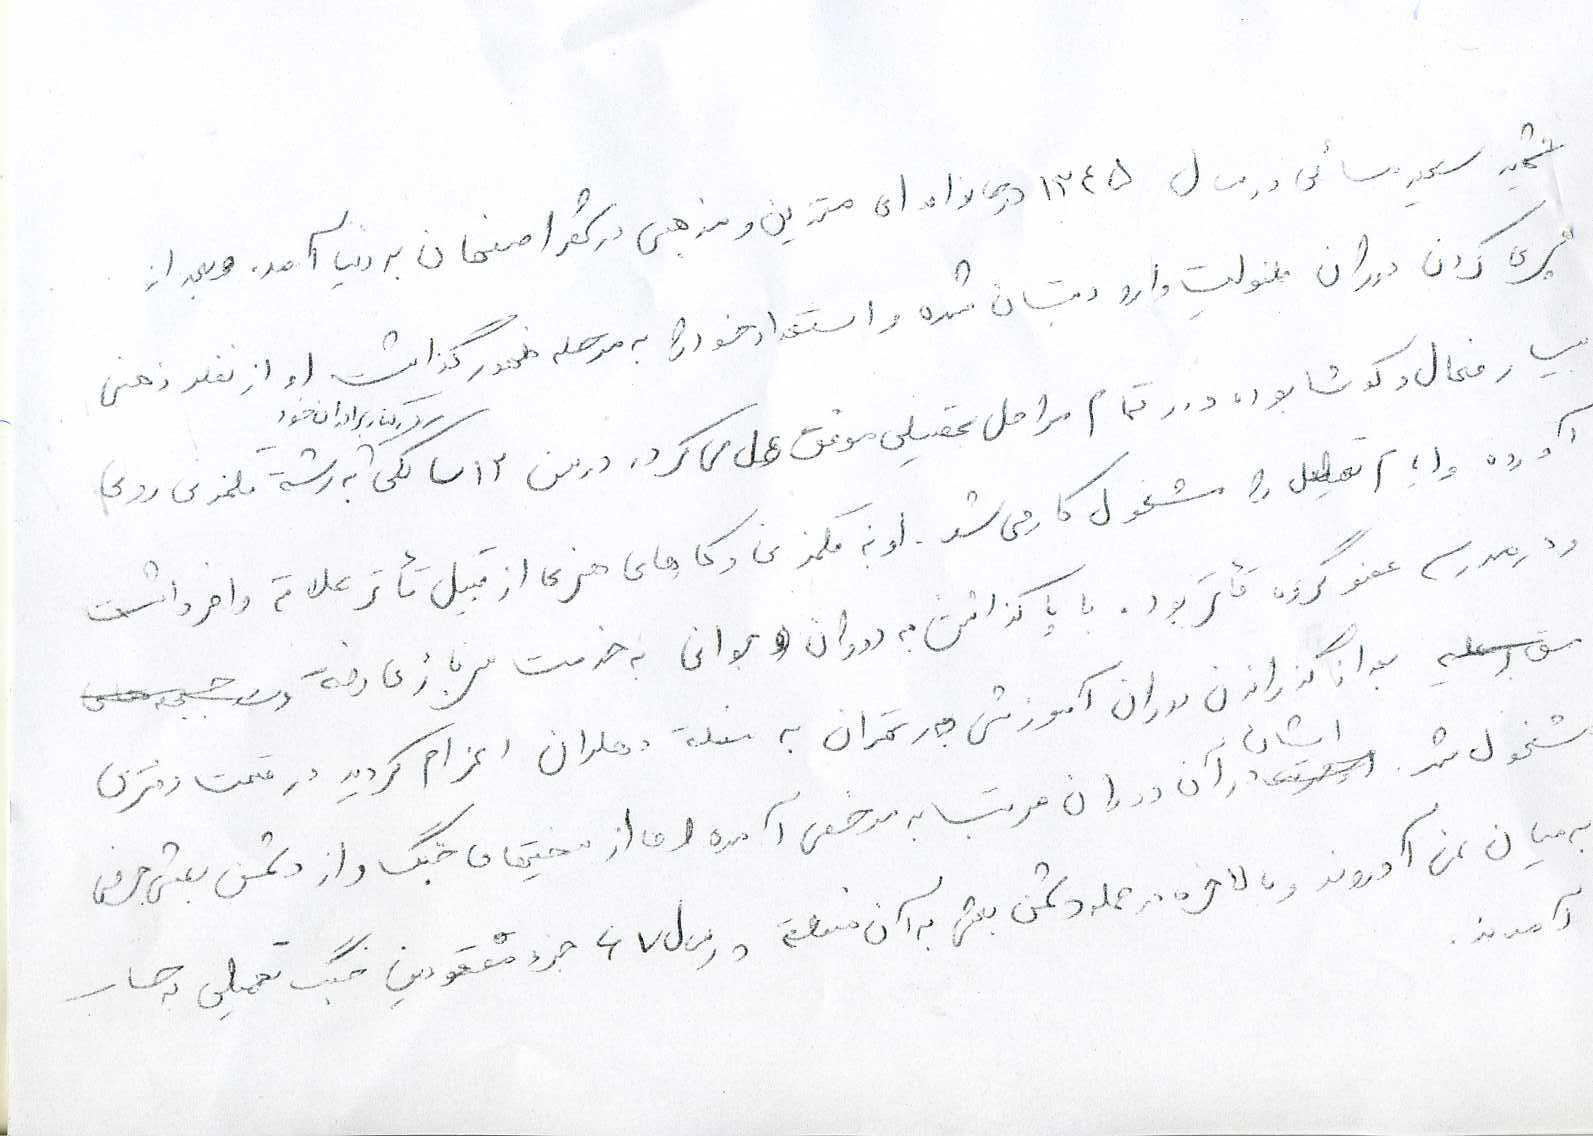 شهید سعید در سال ۱۳۴۵ در خانواده ای متدین و مذهبی در شهر اصفهان به دنیا آمد. و بعد از
سپری کردن دوران طفولیت وارد دبستان شده و استعداد خود را به مرحله ظهور گذاشت او از نظر ذهنی
بسیار فعال و کوشا بوده و در تمام مراحل تحصیلی موفق عمل می کرد. در سن ۱۲ سالگی به رشته قلمزنی روی
در کنار برادران خود
آورده و ایام تعطیل را مشغول کار می شد. او به قلمزنی و کارهای هنری از قبیل تأتر علاقه وافر داشت
و در مدرسه عضو گروه تأتر بود. با پا گذاشتن به دوران جوانی به خدمت سربازی رفته
بعد از گذراندن دوران آموزشی در تهران به منطقه دهلران اعزام گردید در قسمت دفتری
مشغول شد. ایشان در آن دوران مرتبا به مرخصی آمده اما از سختیهای جنگ و از دشمن بعثی حرفی
به میان نمی آوردند و بالاخره در حمله دشمن بعثی به آن منطقه در سال ۶۷ جزء مفقودین جنگ تحمیلی به حساب
آمدند.